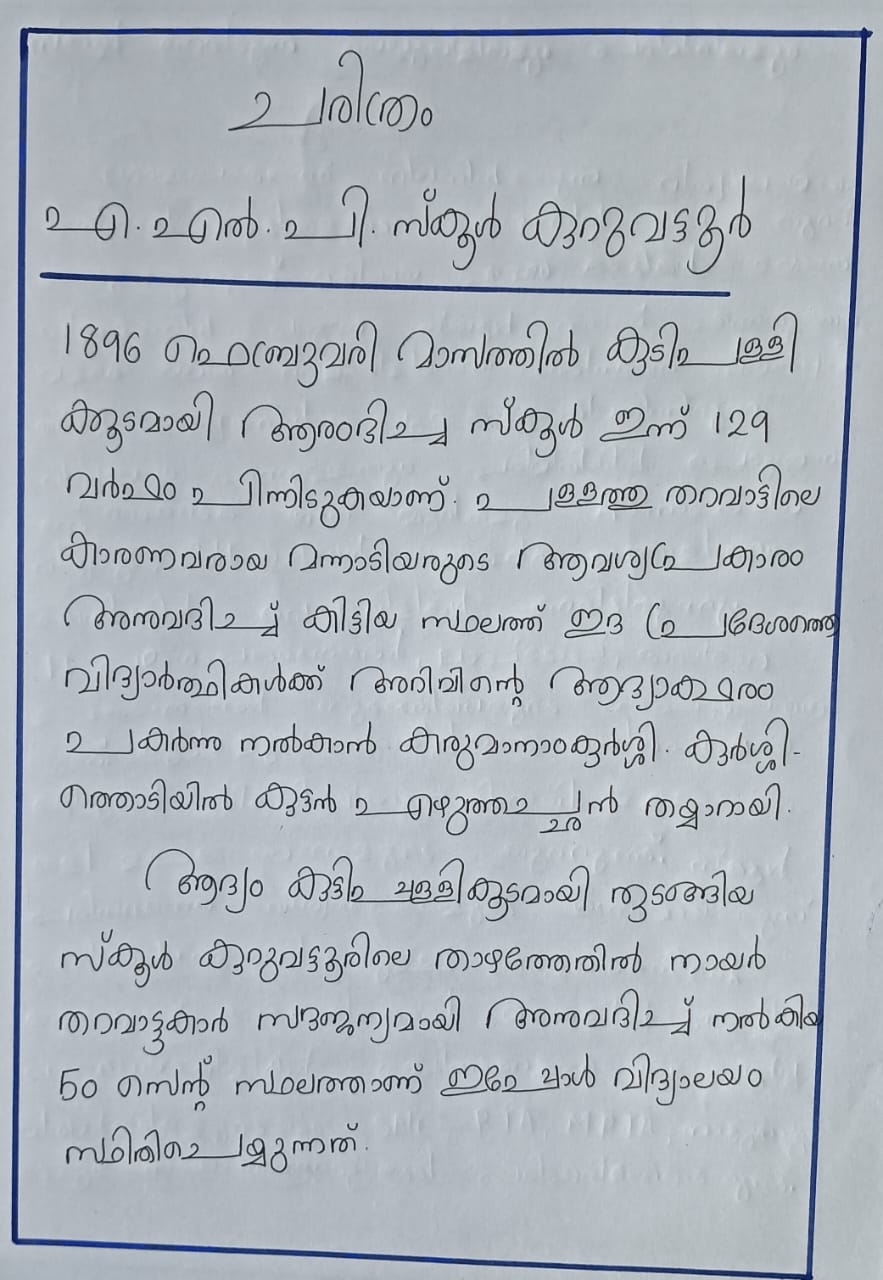 ചരിത്രം
എ.എൽ.പി. സ്കൂൾ കുറുവട്ടൂർ
1896 ഫെബ്രുവരി മാസത്തിൽ കുടിപ്പള്ളി
ക്കൂടമായി ആരംഭിച്ച സ്കൂൾ ഇന്ന് 129
വർഷം പിന്നിടുകയാണ്. പള്ളത്തു തറവാട്ടിലെ
കാരണവരായ മന്നാടിയരുടെ ആവശ്യപ്രകാരം
അനുവദിച്ച് കിട്ടിയ സ്ഥലത്ത് ഇൗ പ്രദേശത്തെ
വിദ്യാർത്ഥികൾക്ക് അറിവിന്റെ ആദ്യാക്ഷരം
പകർന്നു നൽകാൻ കരുവാനാംകുർശ്ശി. കുർശ്ശി-
ത്തൊടിയിൽ കുട്ടൻ എഴുത്തച്ഛൻ തയ്യാറായി.
ആദ്യം കുടിപ്പള്ളികൂടമായി തുടങ്ങിയ
സ്കൂൾ കുറുവട്ടൂരിലെ താഴത്തേതിൽ നായർ
തറവാട്ടുകാർ സൗജന്യമായി അനുവദിച്ച് നൽകിയ
50 സെന്റ് സ്ഥലത്താണ് ഇപ്പോൾ വിദ്യാലയം
സ്ഥിതിചെയ്യുന്നത്.